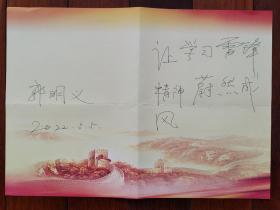 让学习雷锋
精神蔚然成
风
郭明义
2022.5.5.